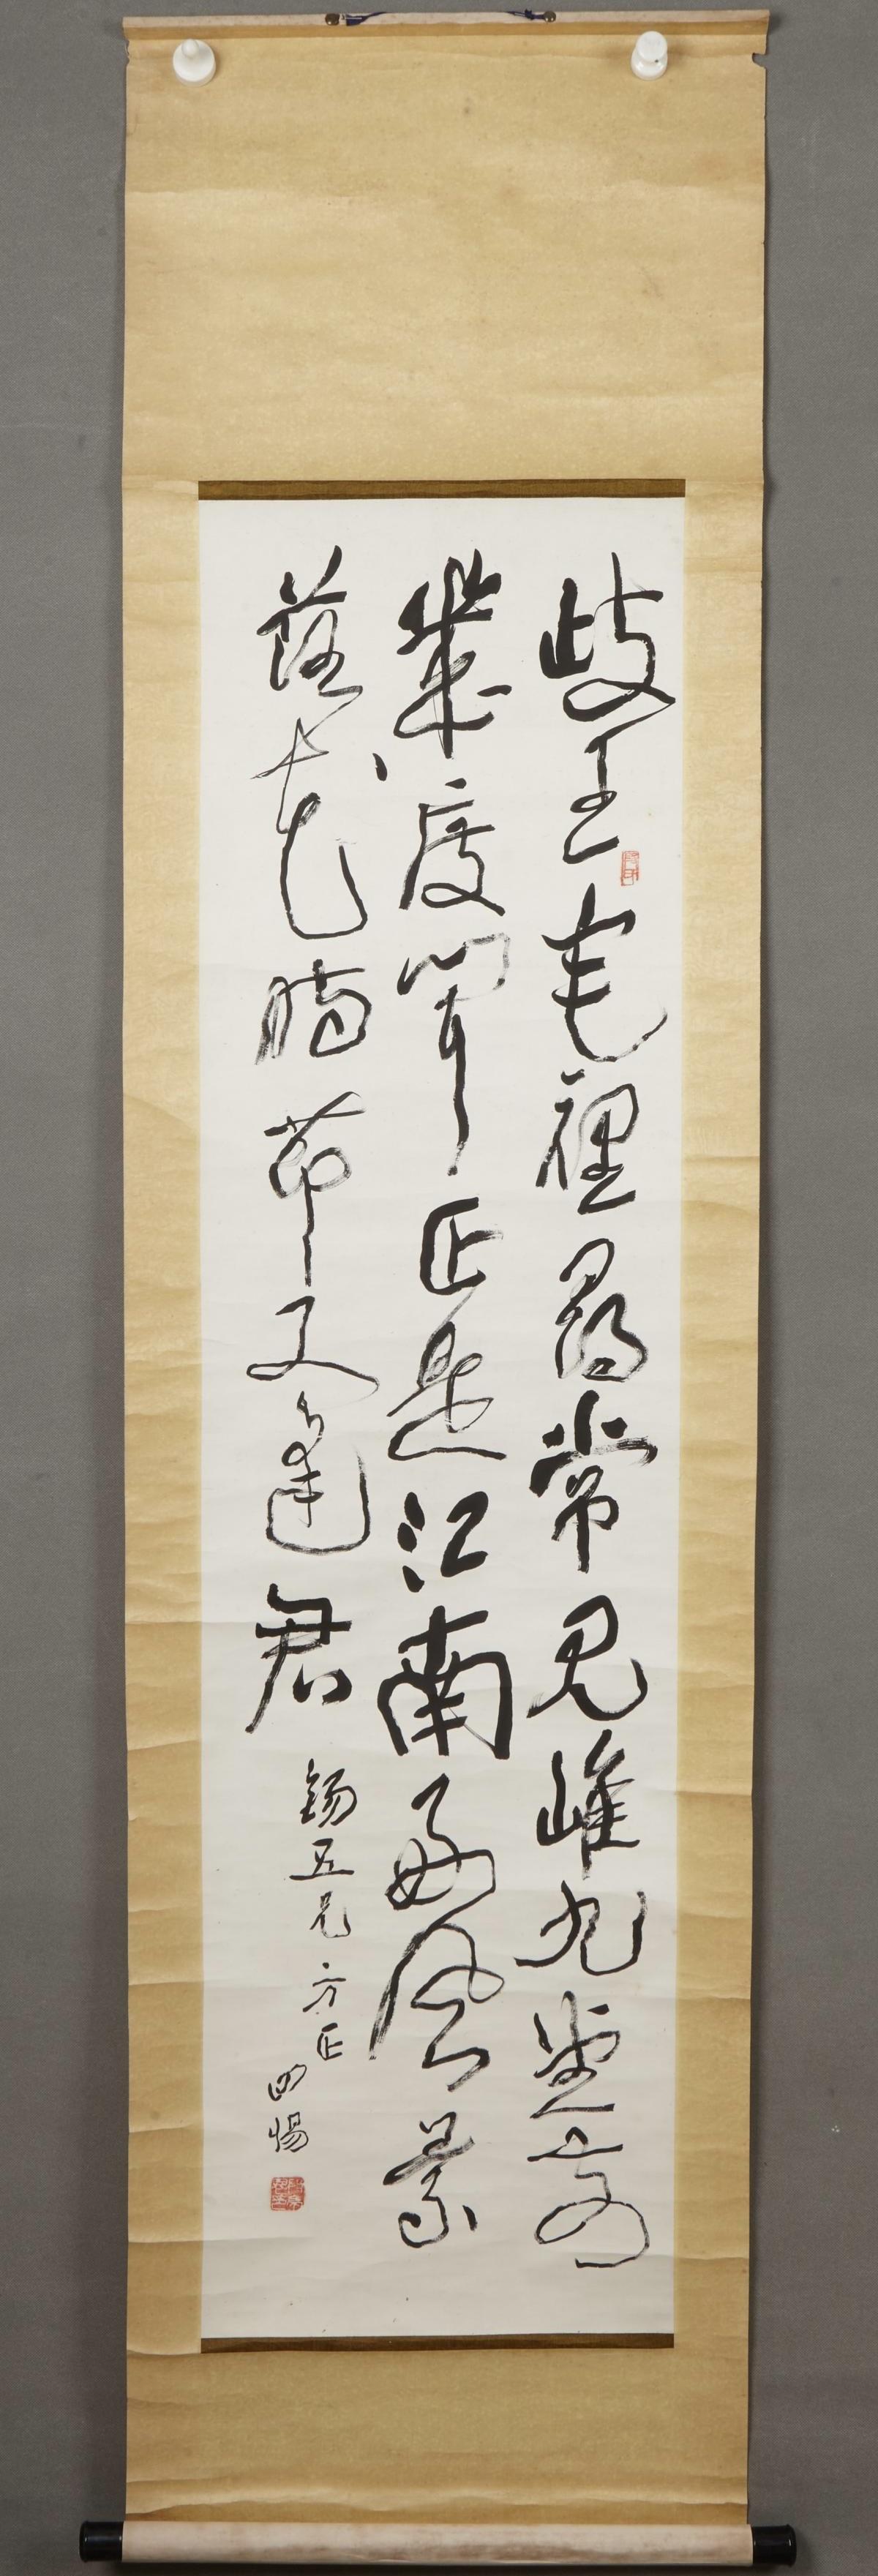 歧王宅裡尋常見崔九堂前
幾度聞正是江南好風景
落花時節又逢君
錫五兄方正
惕